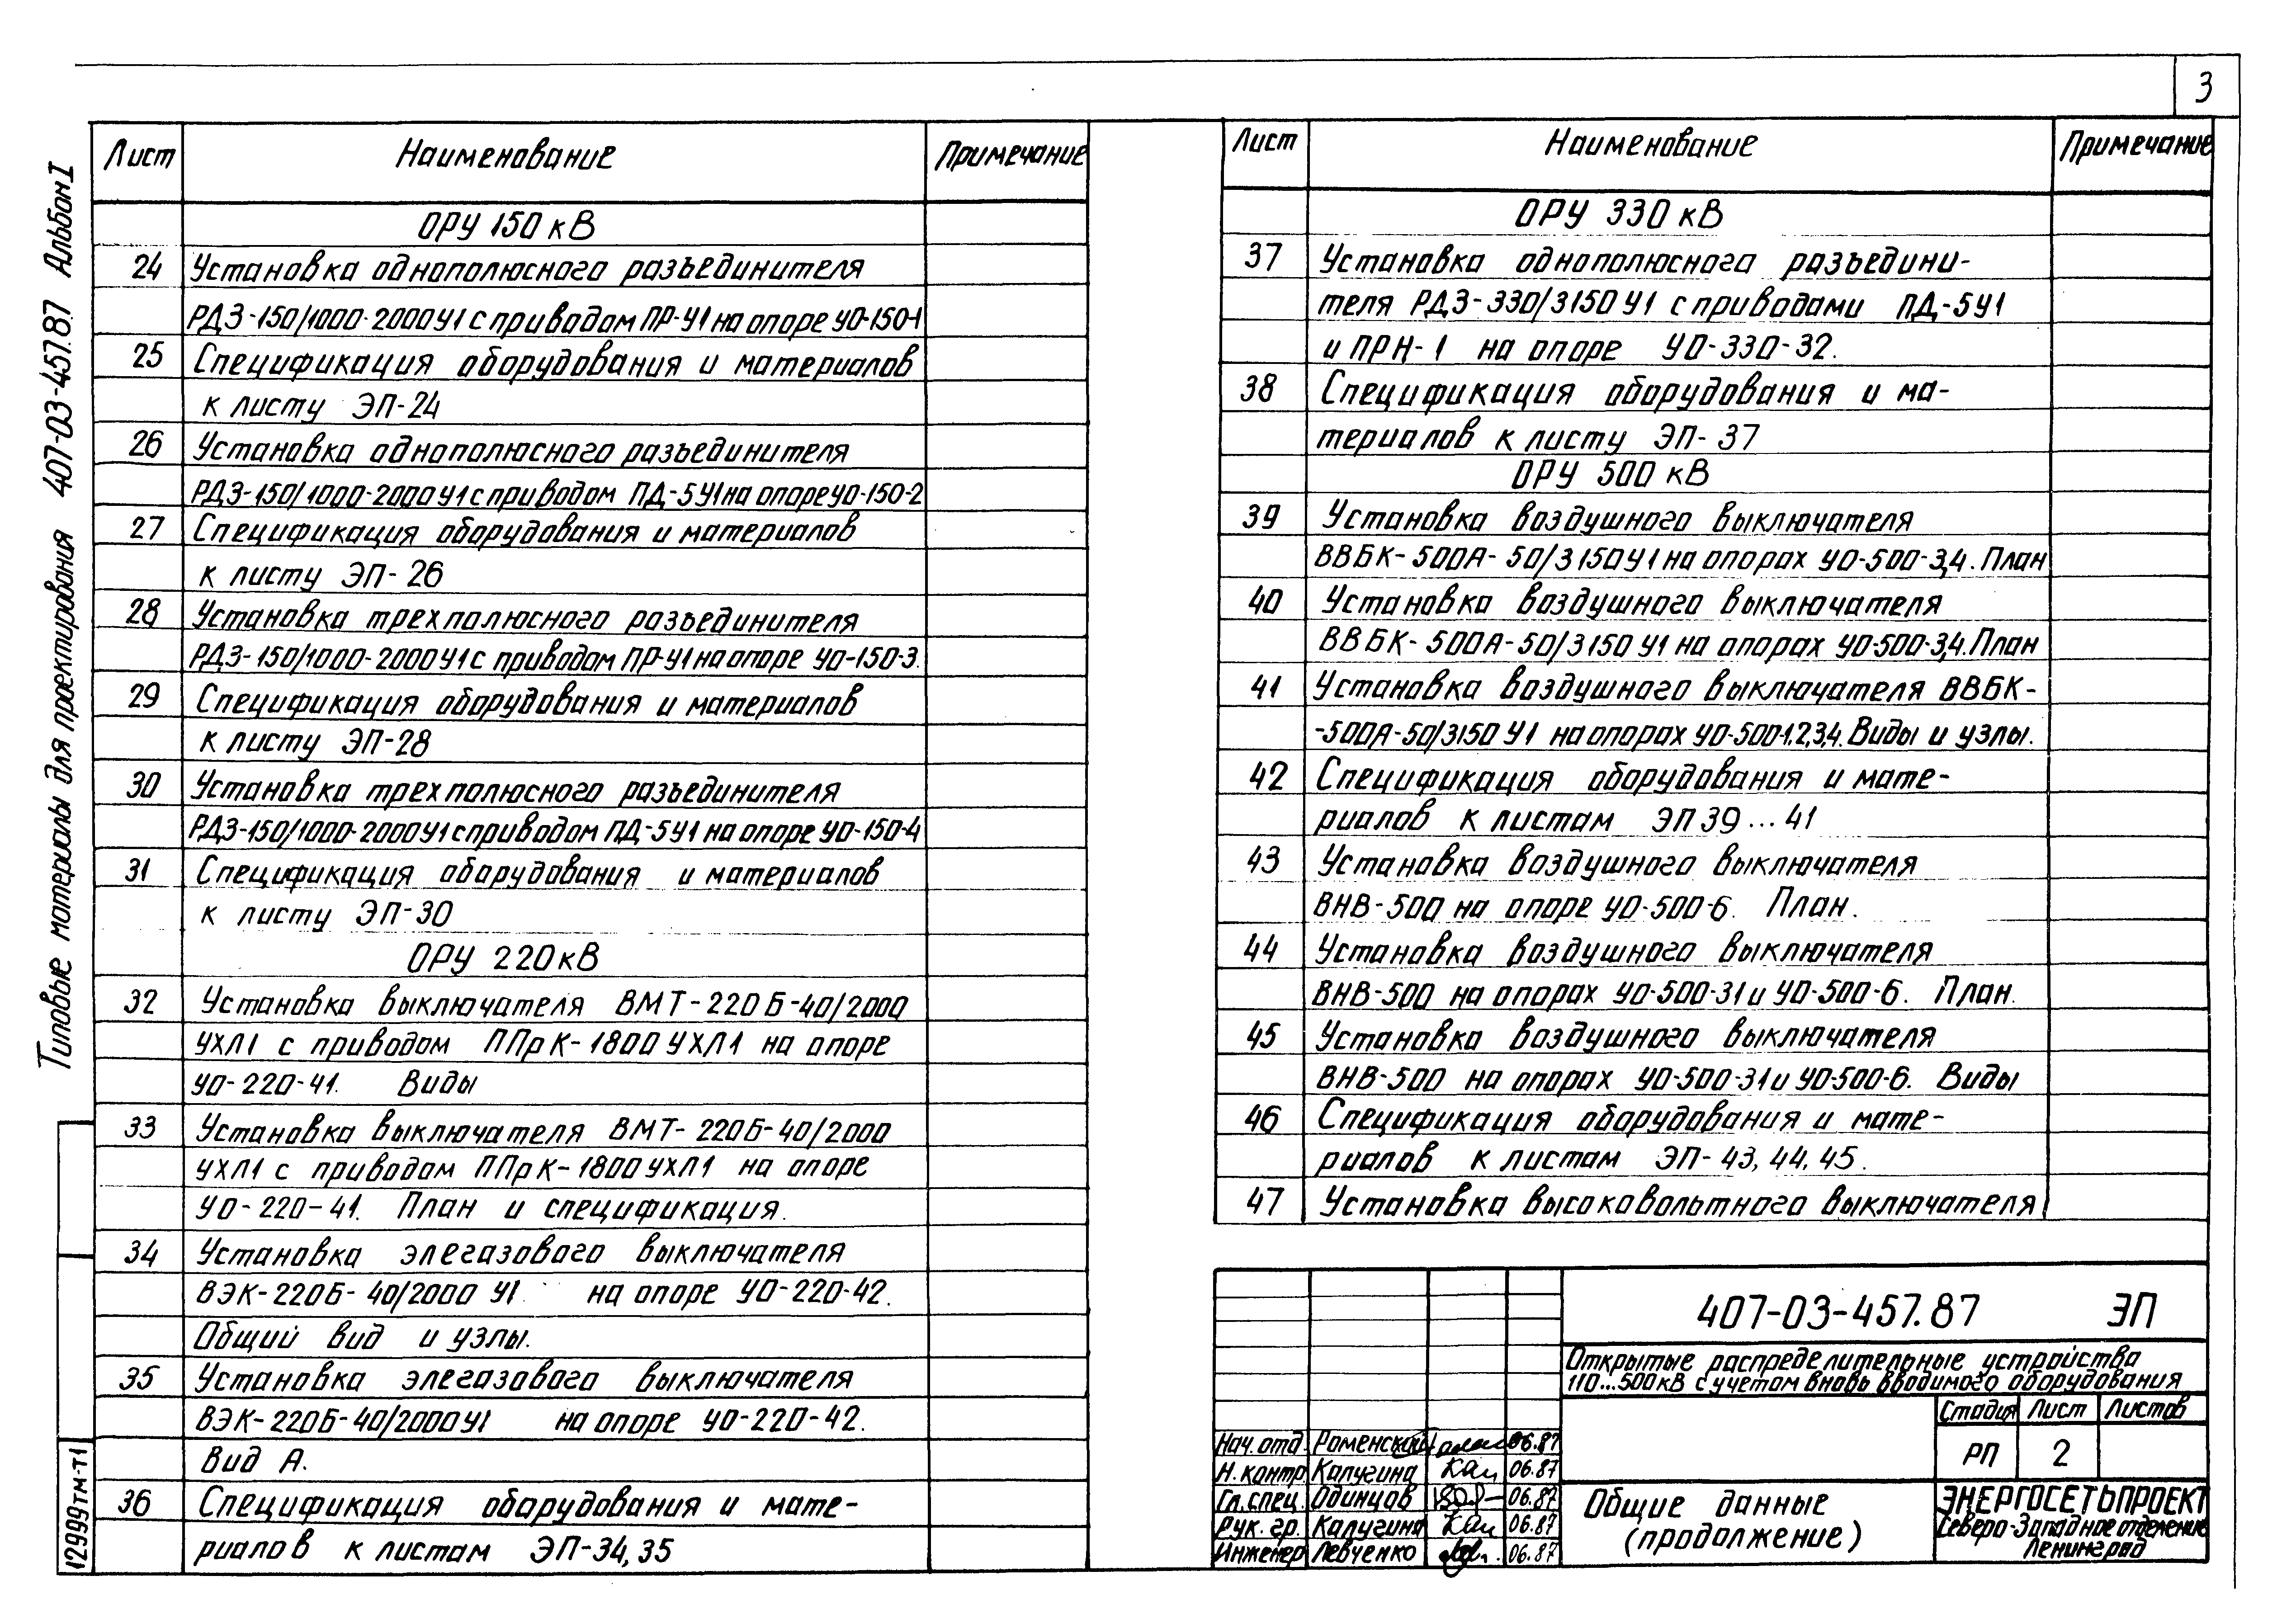 3
Типовые материалы для проектирования 407-03-457.87 Альбом I
12999тм-т1
Лист Наименование Примечание
ОРУ 150 кВ
24 Установка однополюсного разъединителя
РДЗ-150/1000-2000У1 с приводом ПР-У1 на опоре УО-150-1
25 Спецификация оборудования и материалов
к листу ЭП-24
26 Установка однополюсного разъединителя
РДЗ-150/1000-2000У1 с приводом ПД-5У1 на опоре УО-150-2
27 Спецификация оборудования и материалов
к листу ЭП-26
28 Установка трехполюсного разъединителя
РДЗ-150/1000-2000У1 с приводом ПР-У1 на опоре УО-150-3.
29 Спецификация оборудования и материалов
к листу ЭП-28
30 Установка трехполюсного разъединителя
РДЗ-150/1000-2000У1 с приводом ПД-5У1 на опоре УО-150-4
31 Спецификация оборудования и материалов
к листу ЭП-30
ОРУ 220 кВ
32 Установка выключателя ВМТ-220Б-40/2000
УХЛ1 с приводом ППрК-1800 УХЛ1 на опоре
УО-220-41. Виды
33 Установка выключателя ВМТ-220Б-40/2000
УХЛ1 с приводом ППрК-1800 УХЛ1 на опоре
УО-220-41. План и спецификация.
34 Установка элегазового выключателя
ВЭК-220Б-40/2000 У1 на опоре УО-220-42.
Общий вид и узлы.
35 Установка элегазового выключателя
ВЭК-220Б-40/2000У1 на опоре УО-220-42.
Вид А.
36 Спецификация оборудования и мате-
риалов к листам ЭП-34,35
Лист Наименование Примечание
ОРУ 330 кВ
37 Установка однополюсного разъедини-
теля РДЗ-330/3150 У1 с приводами ПД-5У1
и ПРН-1 на опоре УО-330-32.
38 Спецификация оборудования и ма-
териалов к листу ЭП-37
ОРУ 500 кВ
39 Установка воздушного выключателя
ВВБК-500А-50/3150У1 на опорах УО-500-3,4. План
40 Установка воздушного выключателя
ВВБК-500А-50/3150 У1 на опорах УО-500-3,4. План
41 Установка воздушного выключателя ВВБК-
-500А-50/3150 У1 на опорах УО-500-1,2,3,4. Виды и узлы.
42 Спецификация оборудования и мате-
риалов к листам ЭП 39...41
43 Установка воздушного выключателя
ВНВ-500 на опоре УО-500-6. План.
44 Установка воздушного выключателя
ВНВ-500 на опорах УО-500-31 и УО-500-6. План.
45 Установка воздушного выключателя
ВНВ-500 на опорах УО-500-31 и УО-500-6. Виды
46 Спецификация оборудования и мате-
риалов к листам ЭП-43,44,45.
47 Установка высоковольтного выключателя
407-03-457.87 ЭП
Открытые распределительные устройства
110...500кВ с учетом вновь вводимого оборудования
Стадия Лист Листов
РП 2
Нач. отд. Роменский 06.87
Н. контр. Калугина 06.87
Гл. спец. Одинцов 06.87
Рук. гр. Калугина 06.87
Инженер Левченко 06.87
Общие данные
(продолжение)
ЭНЕРГОСЕТЬПРОЕКТ
Северо-Западное отделение
Ленинград